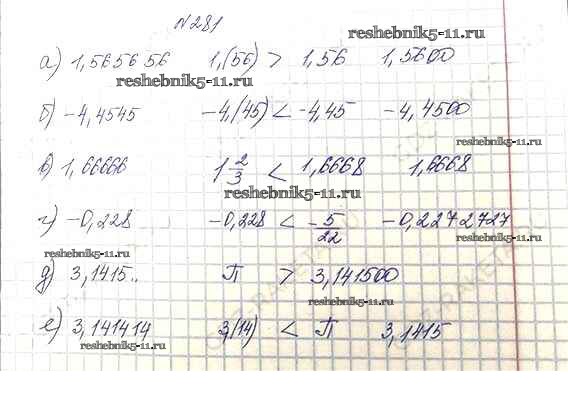 N281
а) 1,565656 1,(56) > 1,56 1,5600
б) -4,4545 -4,(45) < -4,45 -4,4500
в) 1,66666 1 2/3 < 1,6668 1,6668
г) -0,228 -0,228 < -5/22 -0,2272727
д) 3,1415.. П > 3,141500
е) 3,141414 3,(14) < П 3,1415
reshebnik5-11.ru
reshebnik5-11.ru
reshebnik5-11.ru
reshebnik5-11.ru
reshebnik5-11.ru
reshebnik5-11.ru
reshebnik5-11.ru
reshebnik5-11.ru
reshebnik5-11.ru